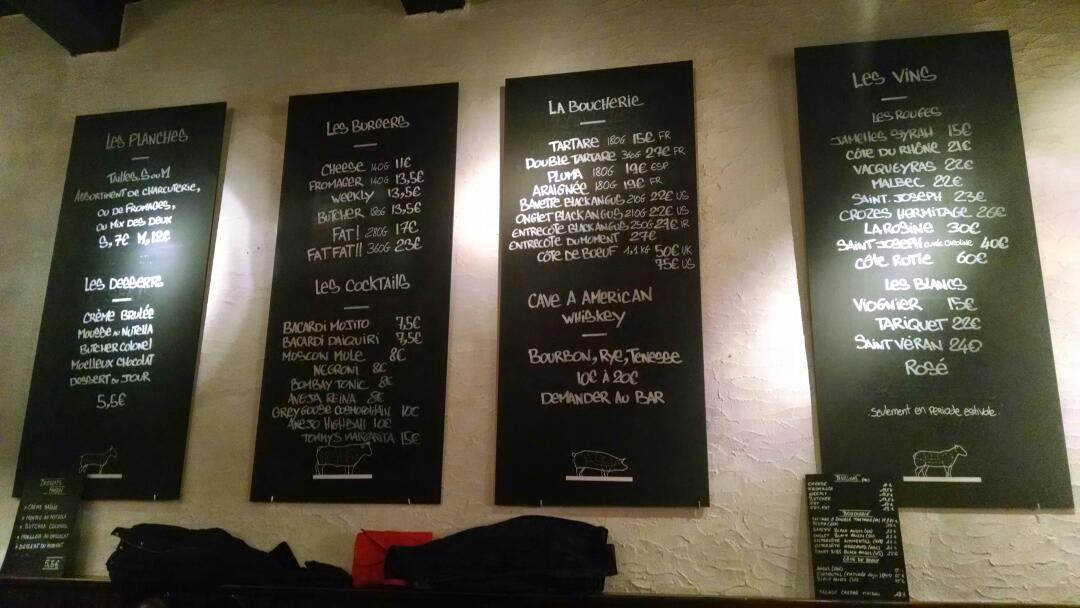 LES PLANCHES
TAILLES S OU M
ASSORTIMENT DE CHARCUTERIE,
OU DE FROMAGES,
OU MIX DES DEUX
S, 7€ M, 12€
LES DESSERTS
CRÈME BRULÉE
MOUSSE AU NUTELLA
BUTCHER COLONEL
MOELLEUX CHOCOLAT
DESSERT DU JOUR
5,5€
LES BURGERS
CHEESE 140G 11€
FROMAGER 140G 13,5€
WEEKLY 13,5€
BUTCHER 180G 13,5€
FAT! 280G 17€
FAT FAT!! 360G 23€
LES COCKTAILS
BACARDI MOJITO 7,5€
BACARDI DAIQUIRI 7,5€
MOSCON MULE 8€
NEGRONI 8€
BOMBAY TONIC 8€
AÑEJA REINA 8€
GREY GOOSE COSMOPOLITAIN 10€
AÑEJO HIGHBALL 10€
TOMMYS MARGARITA 15€
LA BOUCHERIE
TARTARE 180G 15€ FR
DOUBLE TARTARE 360G 27€ FR
PLUMA 180G 19€ ESP
ARAIGNÉE 180G 19€ FR
BAVETTE BLACK ANGUS 210G 22€ US
ONGLET BLACK ANGUS 210G 22€ US
ENTRECÔTE BLACK ANGUS 250G 27€ IR
ENTRECÔTE DU MOMENT 27€
CÔTE DE BOEUF 1,1KG 50€ UK
75€ US
CAVE A AMERICAN
WHISKEY
BOURBON, RYE, TENESSE
10€ À 20€
DEMANDER AU BAR
LES VINS
LES ROUGES
JAMELLES SYRAH 15€
CÔTE DU RHÔNE 21€
VACQUEYRAS 22€
MALBEC 22€
SAINT. JOSEPH 23€
CROZES HERMITAGE 26€
LA ROSINE 30€
SAINT JOSEPH CUVÉE CAROLINE 40€
CÔTE ROTIE 60€
LES BLANCS
VIOGNIER 15€
TARIQUET 22€
SAINT VÉRAN 24€
ROSÉ
SEULEMENT EN PERIODE ESTIVALE.
DESSERTS
MAISON
CRÈME BRULÉE
MOUSSE AU NUTELLA
BUTCHER COLONEL
MOELLEUX AU CHOCOLAT
DESSERT DU MOMENT
5,5€
CHEESE
FROMAGER
WEEKLY
BUTCHER
FAT
FAT. FAT
BOUCHERIE
CÔTE DE BOEUF